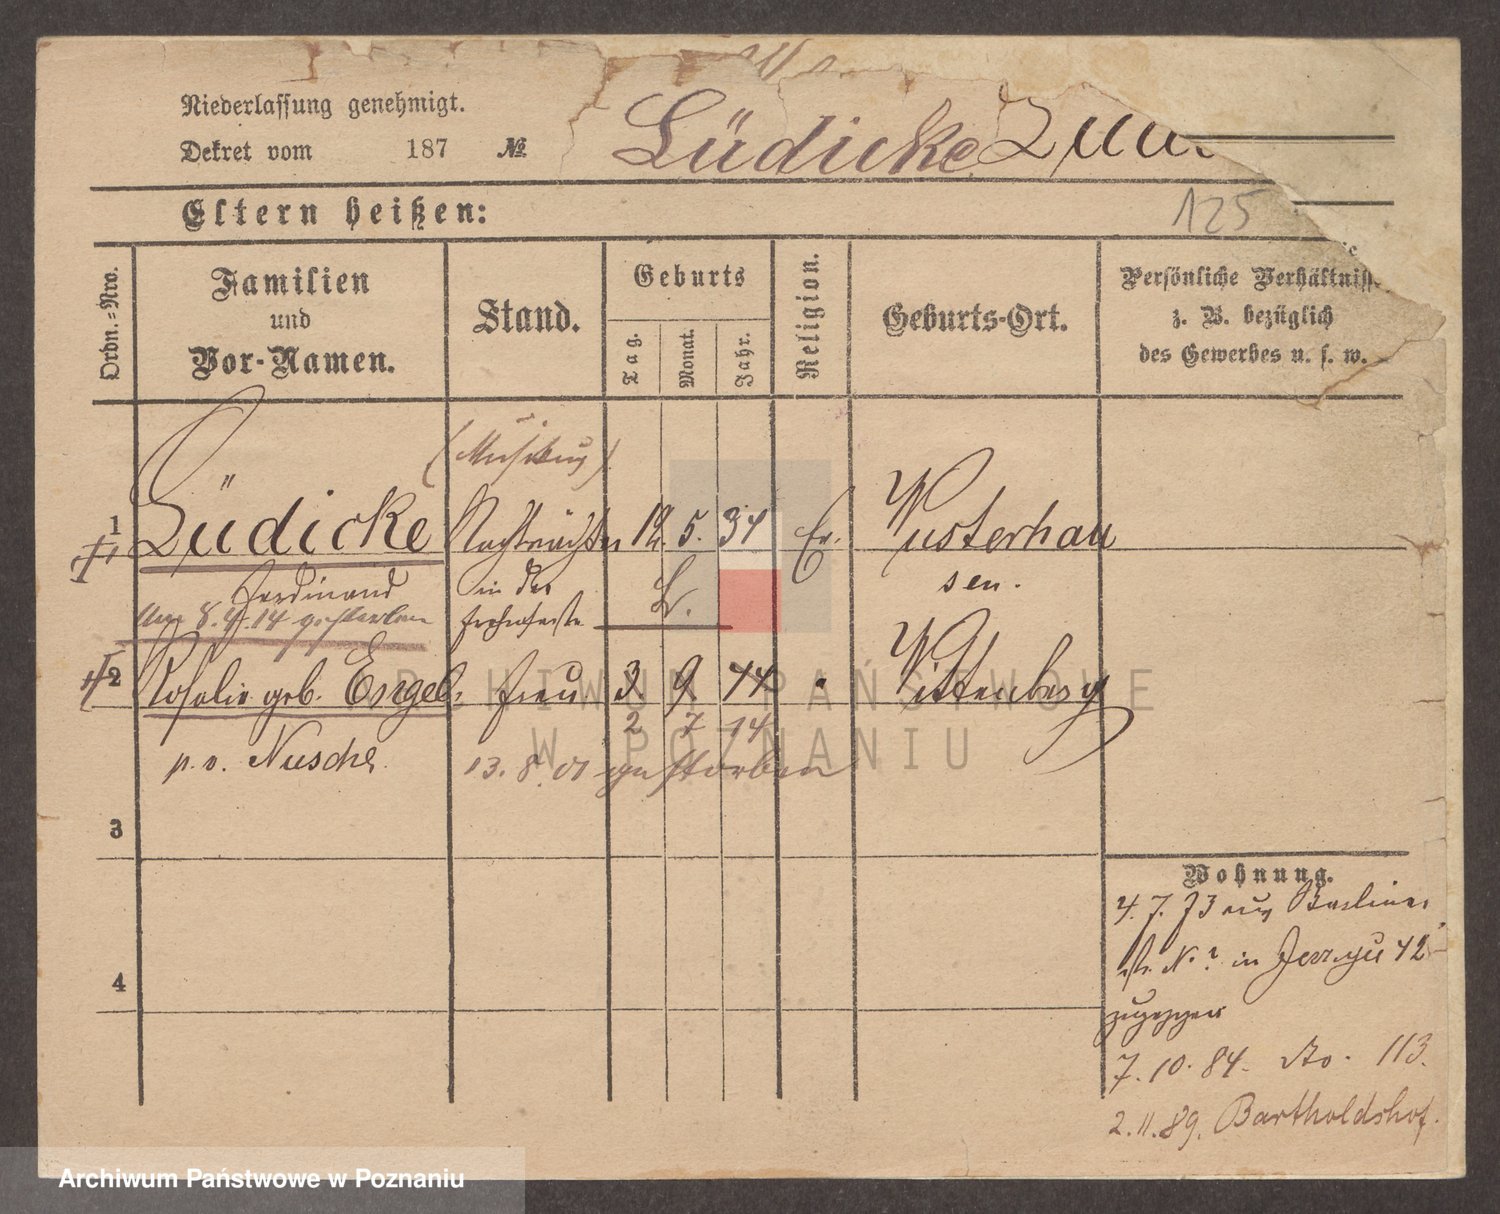 Niederlassung genehmigt.
Dekret vom 187 No
Lüdicke
125
Eltern heißen:
Ordn.-Nro.
Familien und Vor-Namen.
Stand.
Geburts
Tag.
Monat.
Jahr.
Religion.
Geburts-Ort.
Persönliche Verhältniss
z. B. bezüglich
des Gewerbes u. s. w.
(Musikus)
1 Lüdicke Nachtwächter 12. 5. 34 Ev. Wusterhau
Ferdinand in der sen.
8. 4. 14 gestorben
2 Rosalie geb. Engel Frau 3. 9. 44 " Wittenberg
2 7 14
p. v. Nusche 13. 8. 01 gestorben
3
4
Wohnung.
4. 7. 73 aus Berliner
str. No ? in Jerzyce 42
zugezogen
7. 10. 84. No. 113.
2. 11. 89. Bartholdshof.
ARCHIWUM PAŃSTWOWE
W POZNANIU
Archiwum Państwowe w Poznaniu